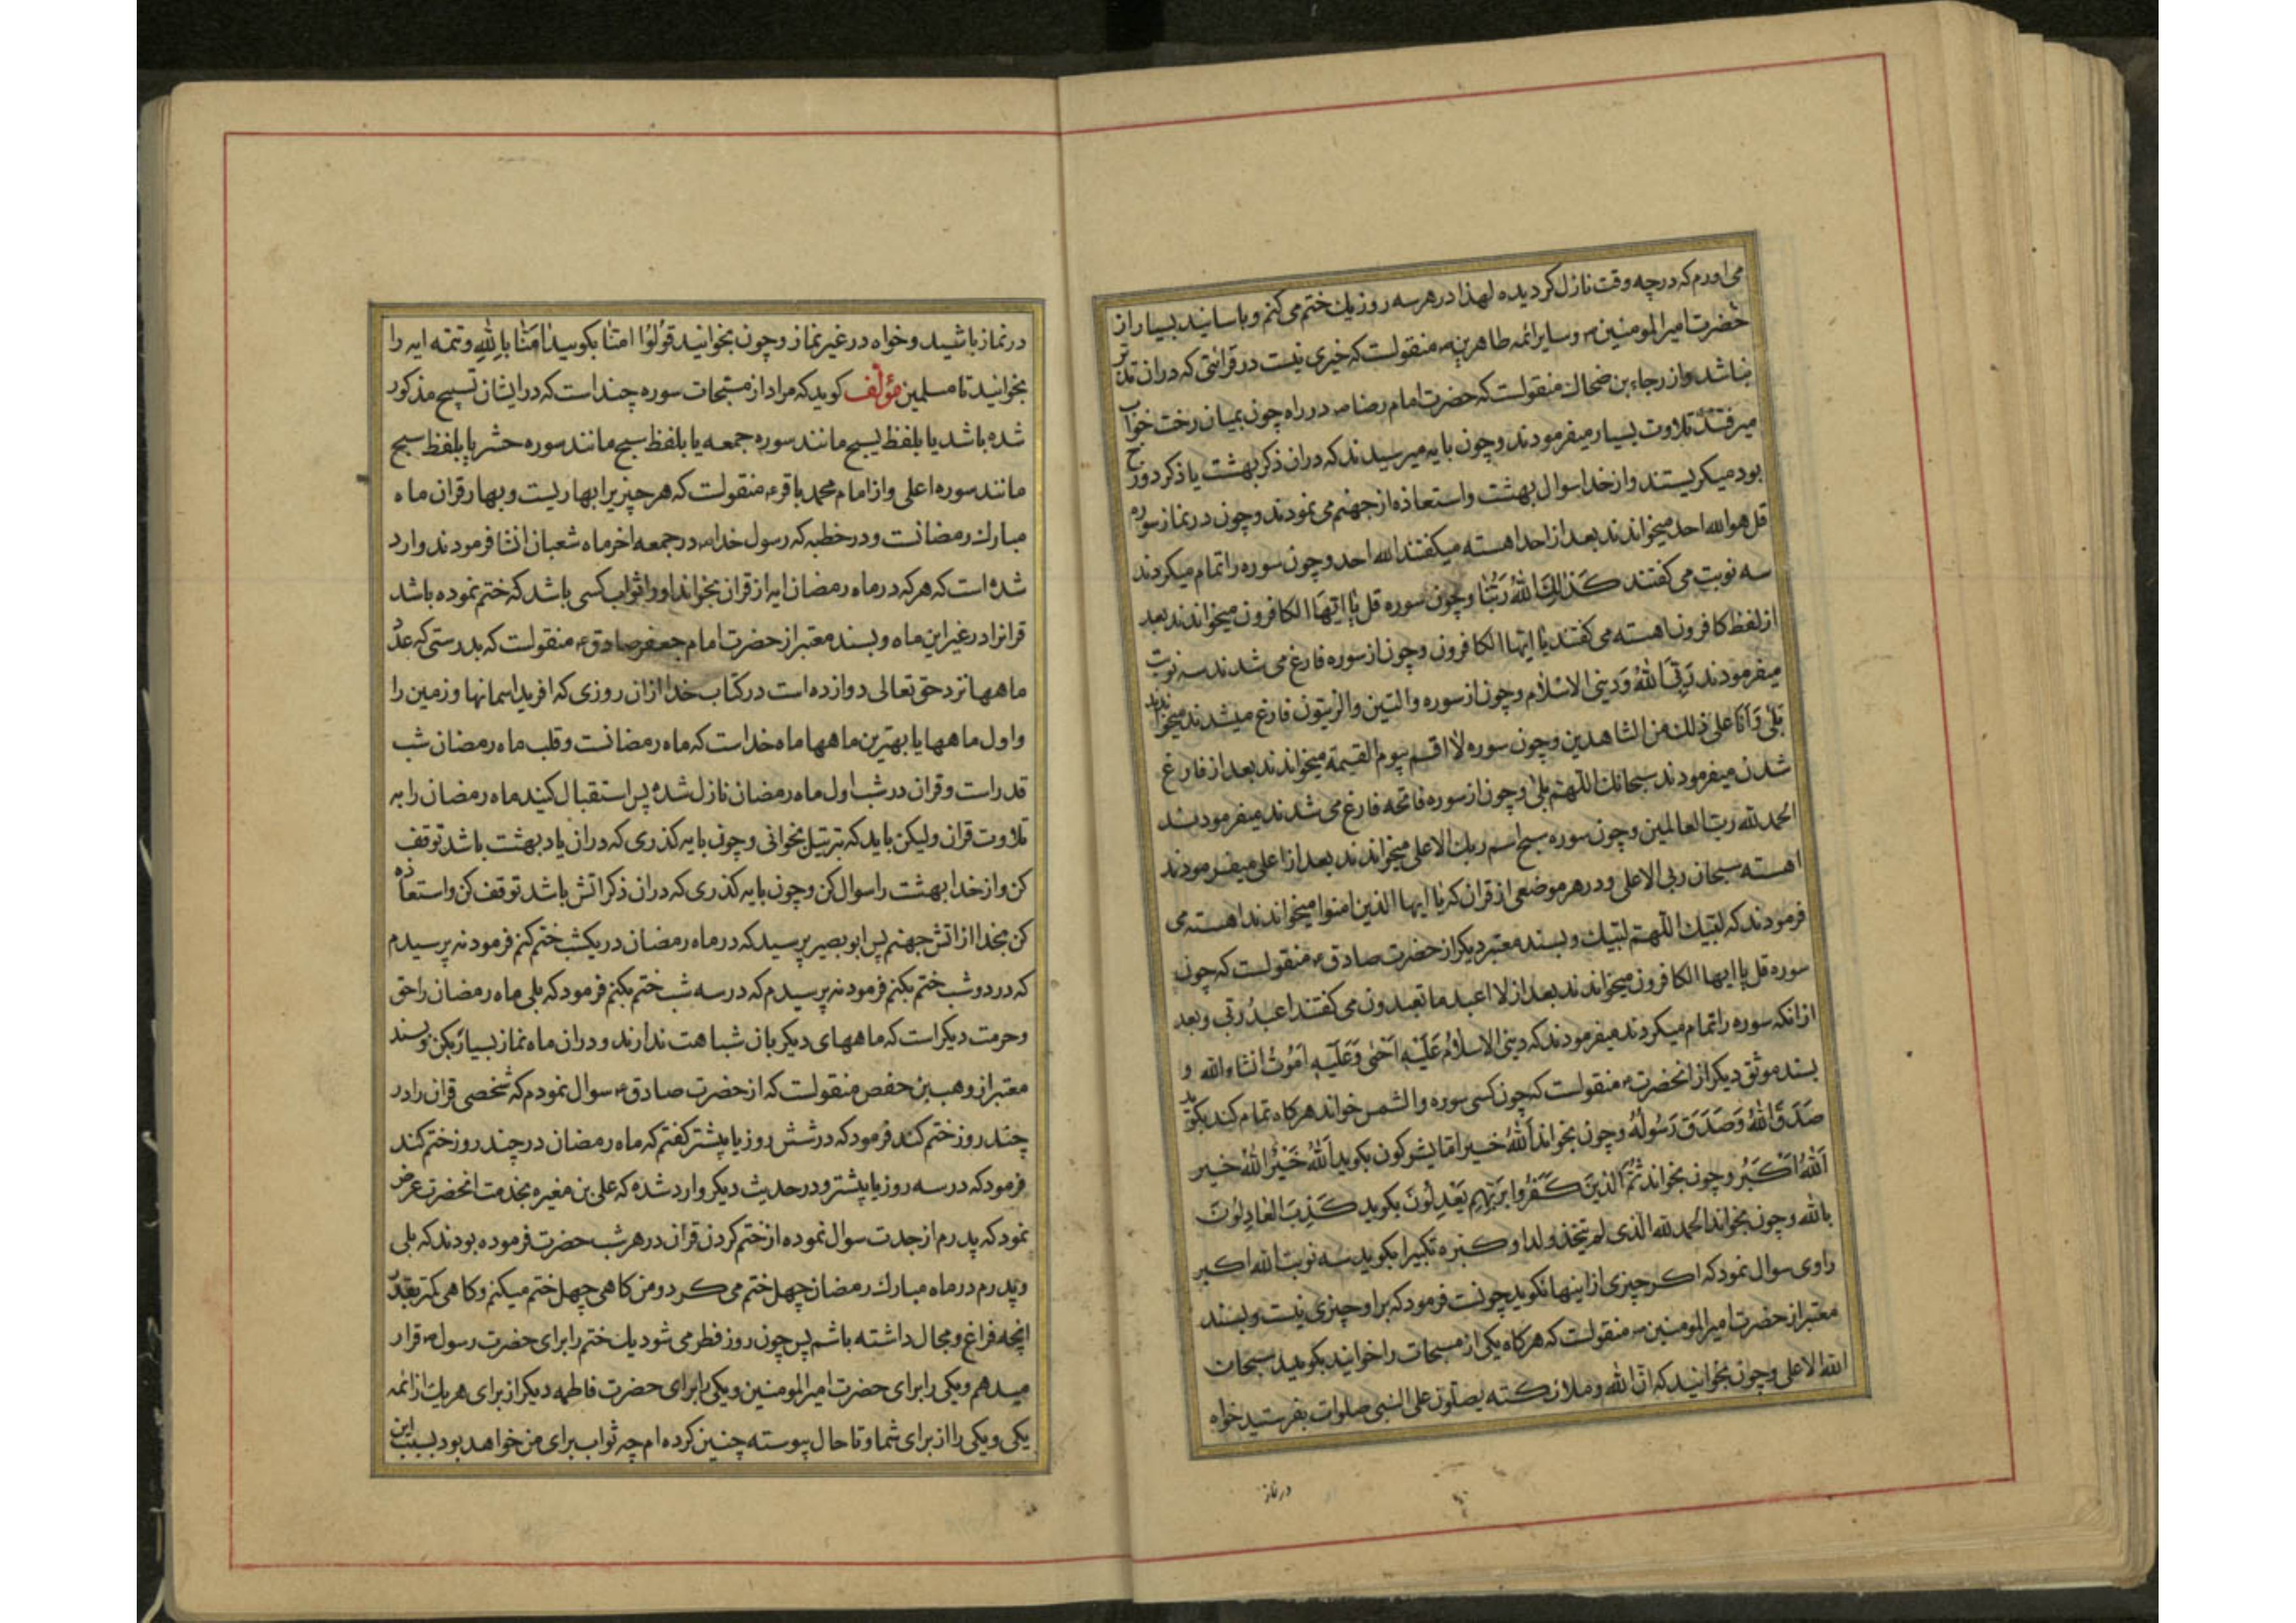 می اورم که درچه وقت نازل کردیده لهذا در هر سه روز یك ختم می کنم و باسانید بسیار از
حضرت امیرالمومنین ۴ و سایر ائمه طاهرین ۴ منقولست که خیری نیست در قرائتی که دران تدبر
نباشد و از رجاء بن ضحاك منقولست که حضرت امام رضا ۴ در راه چون بمیان رخت خواب
میرفتند تلاوت بسیار میفرمودند و چون بایه میرسیدند که دران ذکر بهشت یا ذکر دوزخ
بود میکریستند و از خدا سوال بهشت و استعاذه از جهنم می نمودند و چون در نماز سوره
قل هو الله احد میخواندند بعد از احد اهسته میکفتند الله احد و چون سوره را تمام میکردند
سه نوبت می کفتند كَذٰلِكَ اللّٰهُ رَبُّنٰا و چون سوره قل یٰا ایهَا الکافرون میخواندند بعد
از لفظ کافرون اهسته می کفتند یٰا ایها الکافرون و چون از سوره فارغ می شدند سه نوبت
میفرمودند رَبِّيَ اللّٰهُ وَدینی الاسْلٰام و چون از سوره والتین والزیتون فارغ میشدند میخواندند
بَلٰی وَاَنَا علی ذٰلِك من الشاهدین و چون سوره لٰا اقسم بیوم القیمة میخواندند بعد از فارغ
شدن میفرمودند سبحانك اللّهم بلیٰ و چون از سوره فاتحه فارغ می شدند میفرمودند
الحمد لله رب العالمین و چون سوره سبح اسم ربك الاعلی میخواندند بعد از اعلی میفرمودند
اهسته سبحان ربی الاعلی و در هر موضعی از قران که یٰا ایها الذین امنوا میخواندند اهسته می
فرمودند که لبیك اللّهم لبّیك و بسند معتبر دیکر از حضرت صادق ۴ منقولست که چون
سوره قل یٰا ایها الکافرون میخواندند بعد از لا اعبد ما تعبدون می کفتند اعبدُ ربّی و بعد
از انکه سوره را تمام میکردند میفرمودند که دینی الاسلامُ عَلَیْهِ اَحْیٰی وَعَلَیْهِ اَمُوتُ انشاء الله و
بسند موثق دیکر از انحضرت ۴ منقولست که چون کسی سوره والشمس خواند هرکاه تمام کند بکوید
صَدَقَ اللّٰهُ وَصَدَقَ رَسُولُهُ و چون بخواند اَللّٰهُ خیر امّا یشرکون بکوید اَللّٰهُ خَیْرٌ اَللّٰهُ خیر
اَللّٰهُ اَكْبَرُ و چون بخواند ثُمَّ الَّذینَ كَفَرُوا بِرَبِّهِمْ یَعْدِلُونَ بکوید كَذِبَ العٰادِلُونَ
بالله و چون بخواند الحمد لله الّذی لم یتخذ ولدا و کبّره تکبیرا بکوید سه نوبت الله اکبر
راوی سوال نمود که اکر چیزی از اینها نکوید چونست فرمود که بر او چیزی نیست و بسند
معتبر از حضرت امیرالمومنین ۴ منقولست که هرکاه یکی از مسبحات را خوانید بکویید سبحان
الله الاعلی و چون بخوانید که انّ الله و ملائکته یصلّون علی النبی صلوات بفرستید خواه
در نماز
در نماز باشید و خواه در غیر نماز و چون بخوانید قُولُوٓا امنّا بکویید اٰمَنّٰا بِاللّٰهِ و تتمه ایه را
بخوانید تا مسلمین مؤلف کوید که مراد از مسبّحات سوره چند است که در ایشان تسبیح مذکور
شده باشد یا بلفظ یسبح مانند سوره جمعه یا بلفظ سبح مانند سوره حشر یا بلفظ سبح
مانند سوره اعلی و از امام محمد باقر ۴ منقولست که هر چیز یرا بهاریست و بهار قران ماه
مبارك رمضانست و در خطبه که رسول خدا ۴ در جمعه اخر ماه شعبان انشا فرمودند وارد
شده است که هرکه در ماه رمضان ایه از قران بخواند او را ثواب کسی باشد که ختم نموده باشد
قرانرا در غیر این ماه و بسند معتبر از حضرت امام جعفر صادق ۴ منقولست که بدرستی که عدد
ماهها نزد حق تعالی دوازده است در کتاب خدا از ان روزی که افرید اسمانها و زمین را
و اول ماهها یا بهترین ماهها ماه خداست که ماه رمضانست و قلب ماه رمضان شب
قدر است و قران در شب اول ماه رمضان نازل شده پس استقبال کنید ماه رمضان را به
تلاوت قران ولیکن باید که بترتیل بخوانی و چون بایه کذری که دران یاد بهشت باشد توقف
کن و از خدا بهشت را سوال کن و چون بایه کذری که دران ذکر اتش باشد توقف کن و استعاذه
کن بخدا از اتش جهنم پس ابوبصیر پرسید که در ماه رمضان در یکشب ختم کنم فرمود نه پرسیدم
که در دو شب ختم بکنم فرمود نه پرسیدم که در سه شب ختم بکنم فرمود که بلی ماه رمضان را حق
و حرمت دیکر است که ماههای دیکر بان شباهت ندارند و دران ماه نماز بسیار بکن و بسند
معتبر از وهب بن حفص منقولست که از حضرت صادق ۴ سوال نمودم که شخصی قران را در
چند روز ختم کند فرمود که در شش روز یا پیشتر کفتم که ماه رمضان در چند روز ختم کند
فرمود که در سه روز یا پیشتر و در حدیث دیکر وارد شده که علی بن مغیره بخدمت انحضرت عرض
نمود که پدرم از جدت سوال نموده از ختم کردن قران در هر شب حضرت فرموده بودند که بلی
و پدرم در ماه مبارك رمضان چهل ختم می کرد و من کاهی چهل ختم میکنم و کاهی کمتر بقدر
انچه فراغ و مجال داشته باشم پس چون روز فطر می شود یك ختم را برای حضرت رسول ۴ قرار
میدهم و یکی را برای حضرت امیرالمومنین و یکی را برای حضرت فاطمه دیکر از برای هر یك از ائمه
یکی و یکی را از برای شما و تا حال پیوسته چنین کرده ام چه ثواب برای من خواهد بود بسبب این